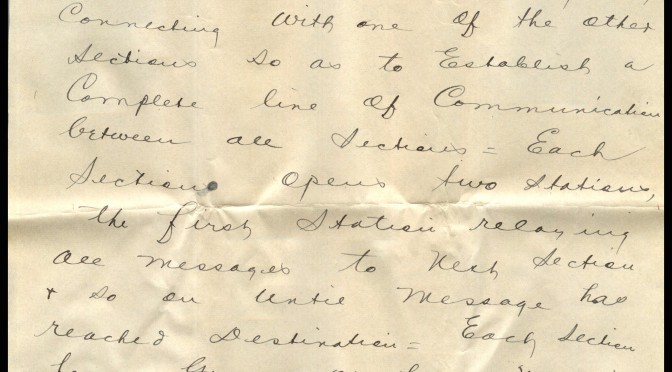 Connecting with one of the other
Sections so as to Establish a
Complete line of Communication
between all Sections = Each
Section opens two Stations,
the first Station relaying
all messages to Next Section
+ so on until Message has
reached Destination = Each Section